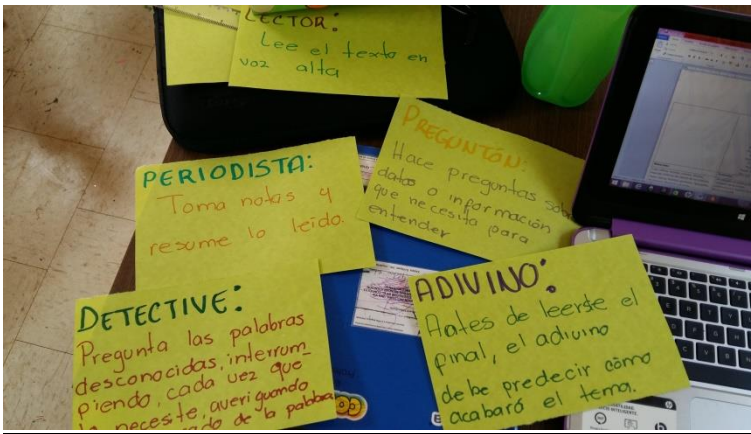 LECTOR:
Lee el texto en
voz alta
PREGUNTÓN:
Hace preguntas sobre
datos o información
que necesita para
entender
PERIODISTA:
Toma notas y
resume lo leído.
DETECTIVE:
Pregunta las palabras
desconocidas, interrum_
piendo, cada vez que
necesite, averiguando
de la palabra
ADIVINO:
Antes de leerse el
final, el adivino
debe predecir cómo
acabará el tema.